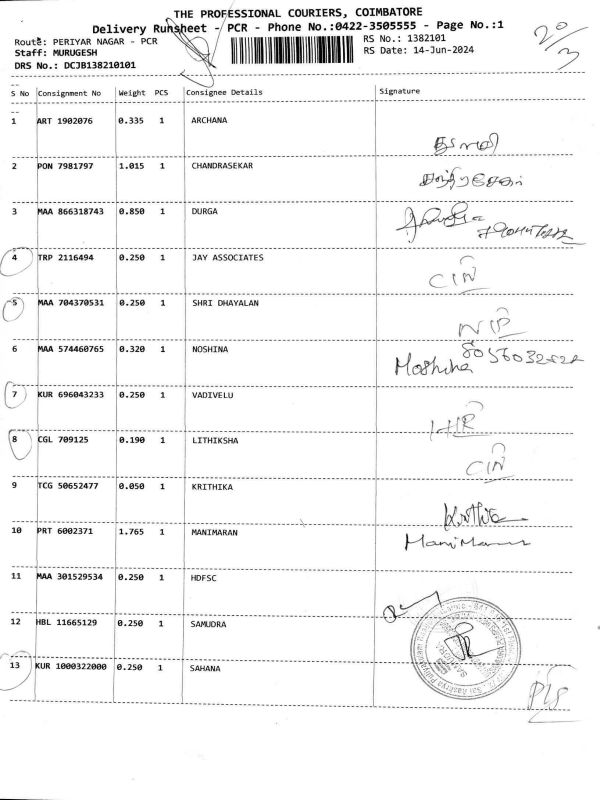 THE PROFESSIONAL COURIERS, COIMBATORE
Delivery Runsheet - PCR - Phone No.:0422-3505555 - Page No.:1
Route: PERIYAR NAGAR - PCR RS No.: 1382101
Staff: MURUGESH RS Date: 14-Jun-2024
DRS No.: DCJB138210101
20/3
S No Consignment No Weight PCS Consignee Details Signature
1 ART 1902076 0.335 1 ARCHANA
2 PON 7981797 1.015 1 CHANDRASEKAR
3 MAA 866318743 0.850 1 DURGA
4 TRP 2116494 0.250 1 JAY ASSOCIATES CIN
5 MAA 704370531 0.250 1 SHRI DHAYALAN NIP
6 MAA 574460765 0.320 1 NOSHINA
7 KUR 696043233 0.250 1 VADIVELU
8 CGL 709125 0.190 1 LITHIKSHA CIN
9 TCG 50652477 0.050 1 KRITHIKA
10 PRT 6002371 1.765 1 MANIMARAN
11 MAA 301529534 0.250 1 HDFSC
12 HBL 11665129 0.250 1 SAMUDRA
13 KUR 1000322000 0.250 1 SAHANA